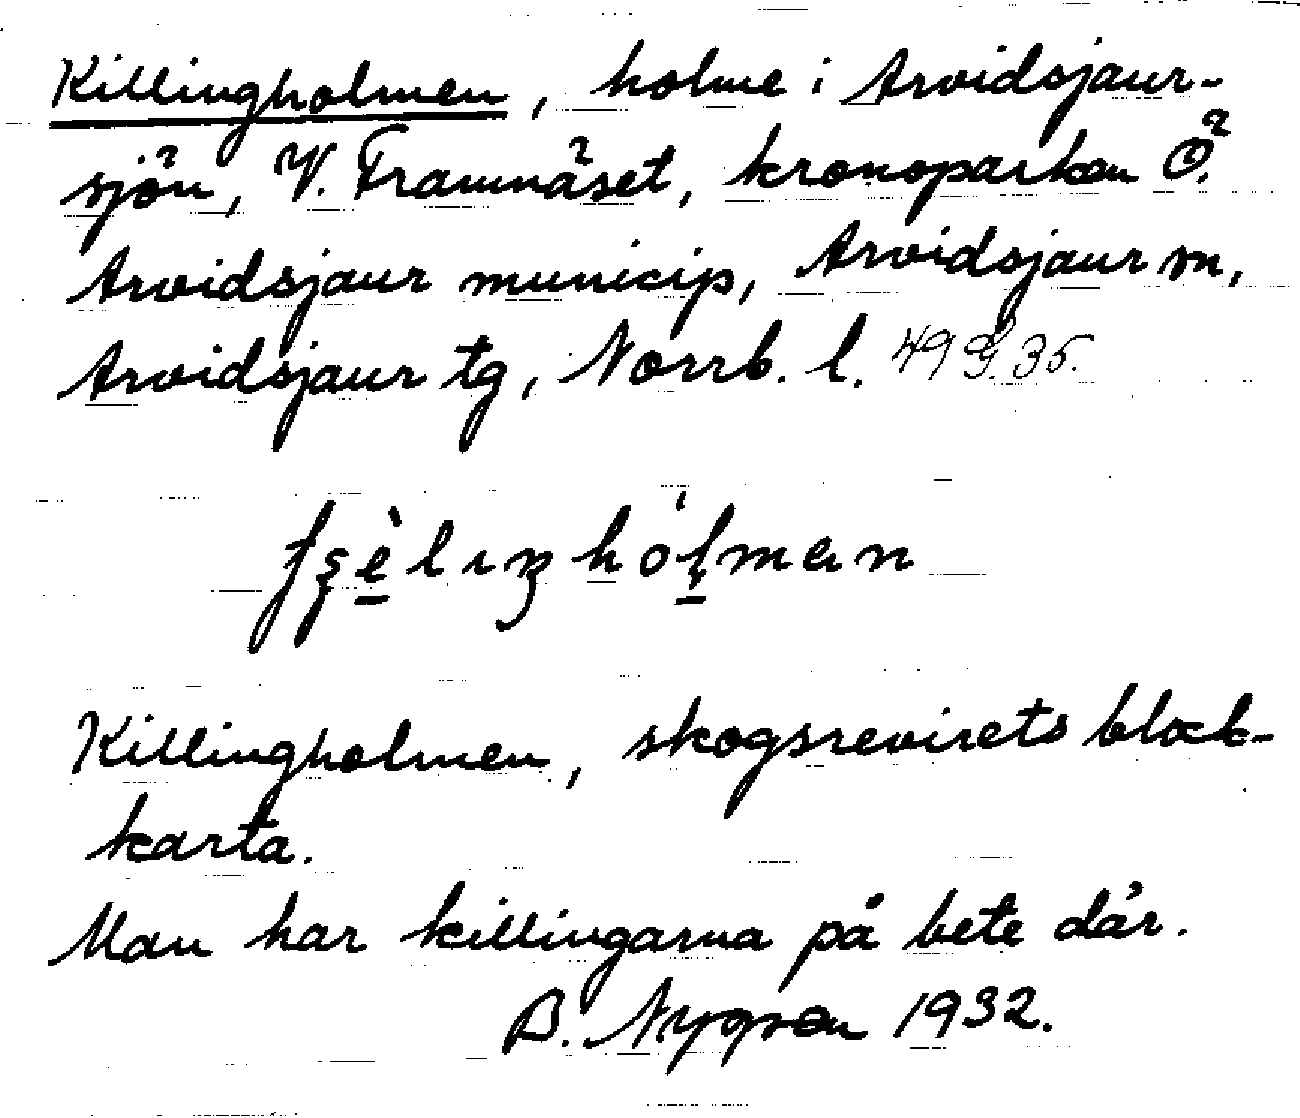 Killingholmen, holme i Arvidsjaur-
sjön, V. Framnäset, kronoparken Ö.
Arvidsjaur municip, Arvidsjaur sn,
Arvidsjaur tg, Norrb. l. 49 35.
Killingholmen, skogsrevirets block-
karta.
Man har killingarna på bete där.
B. Nygren 1932.